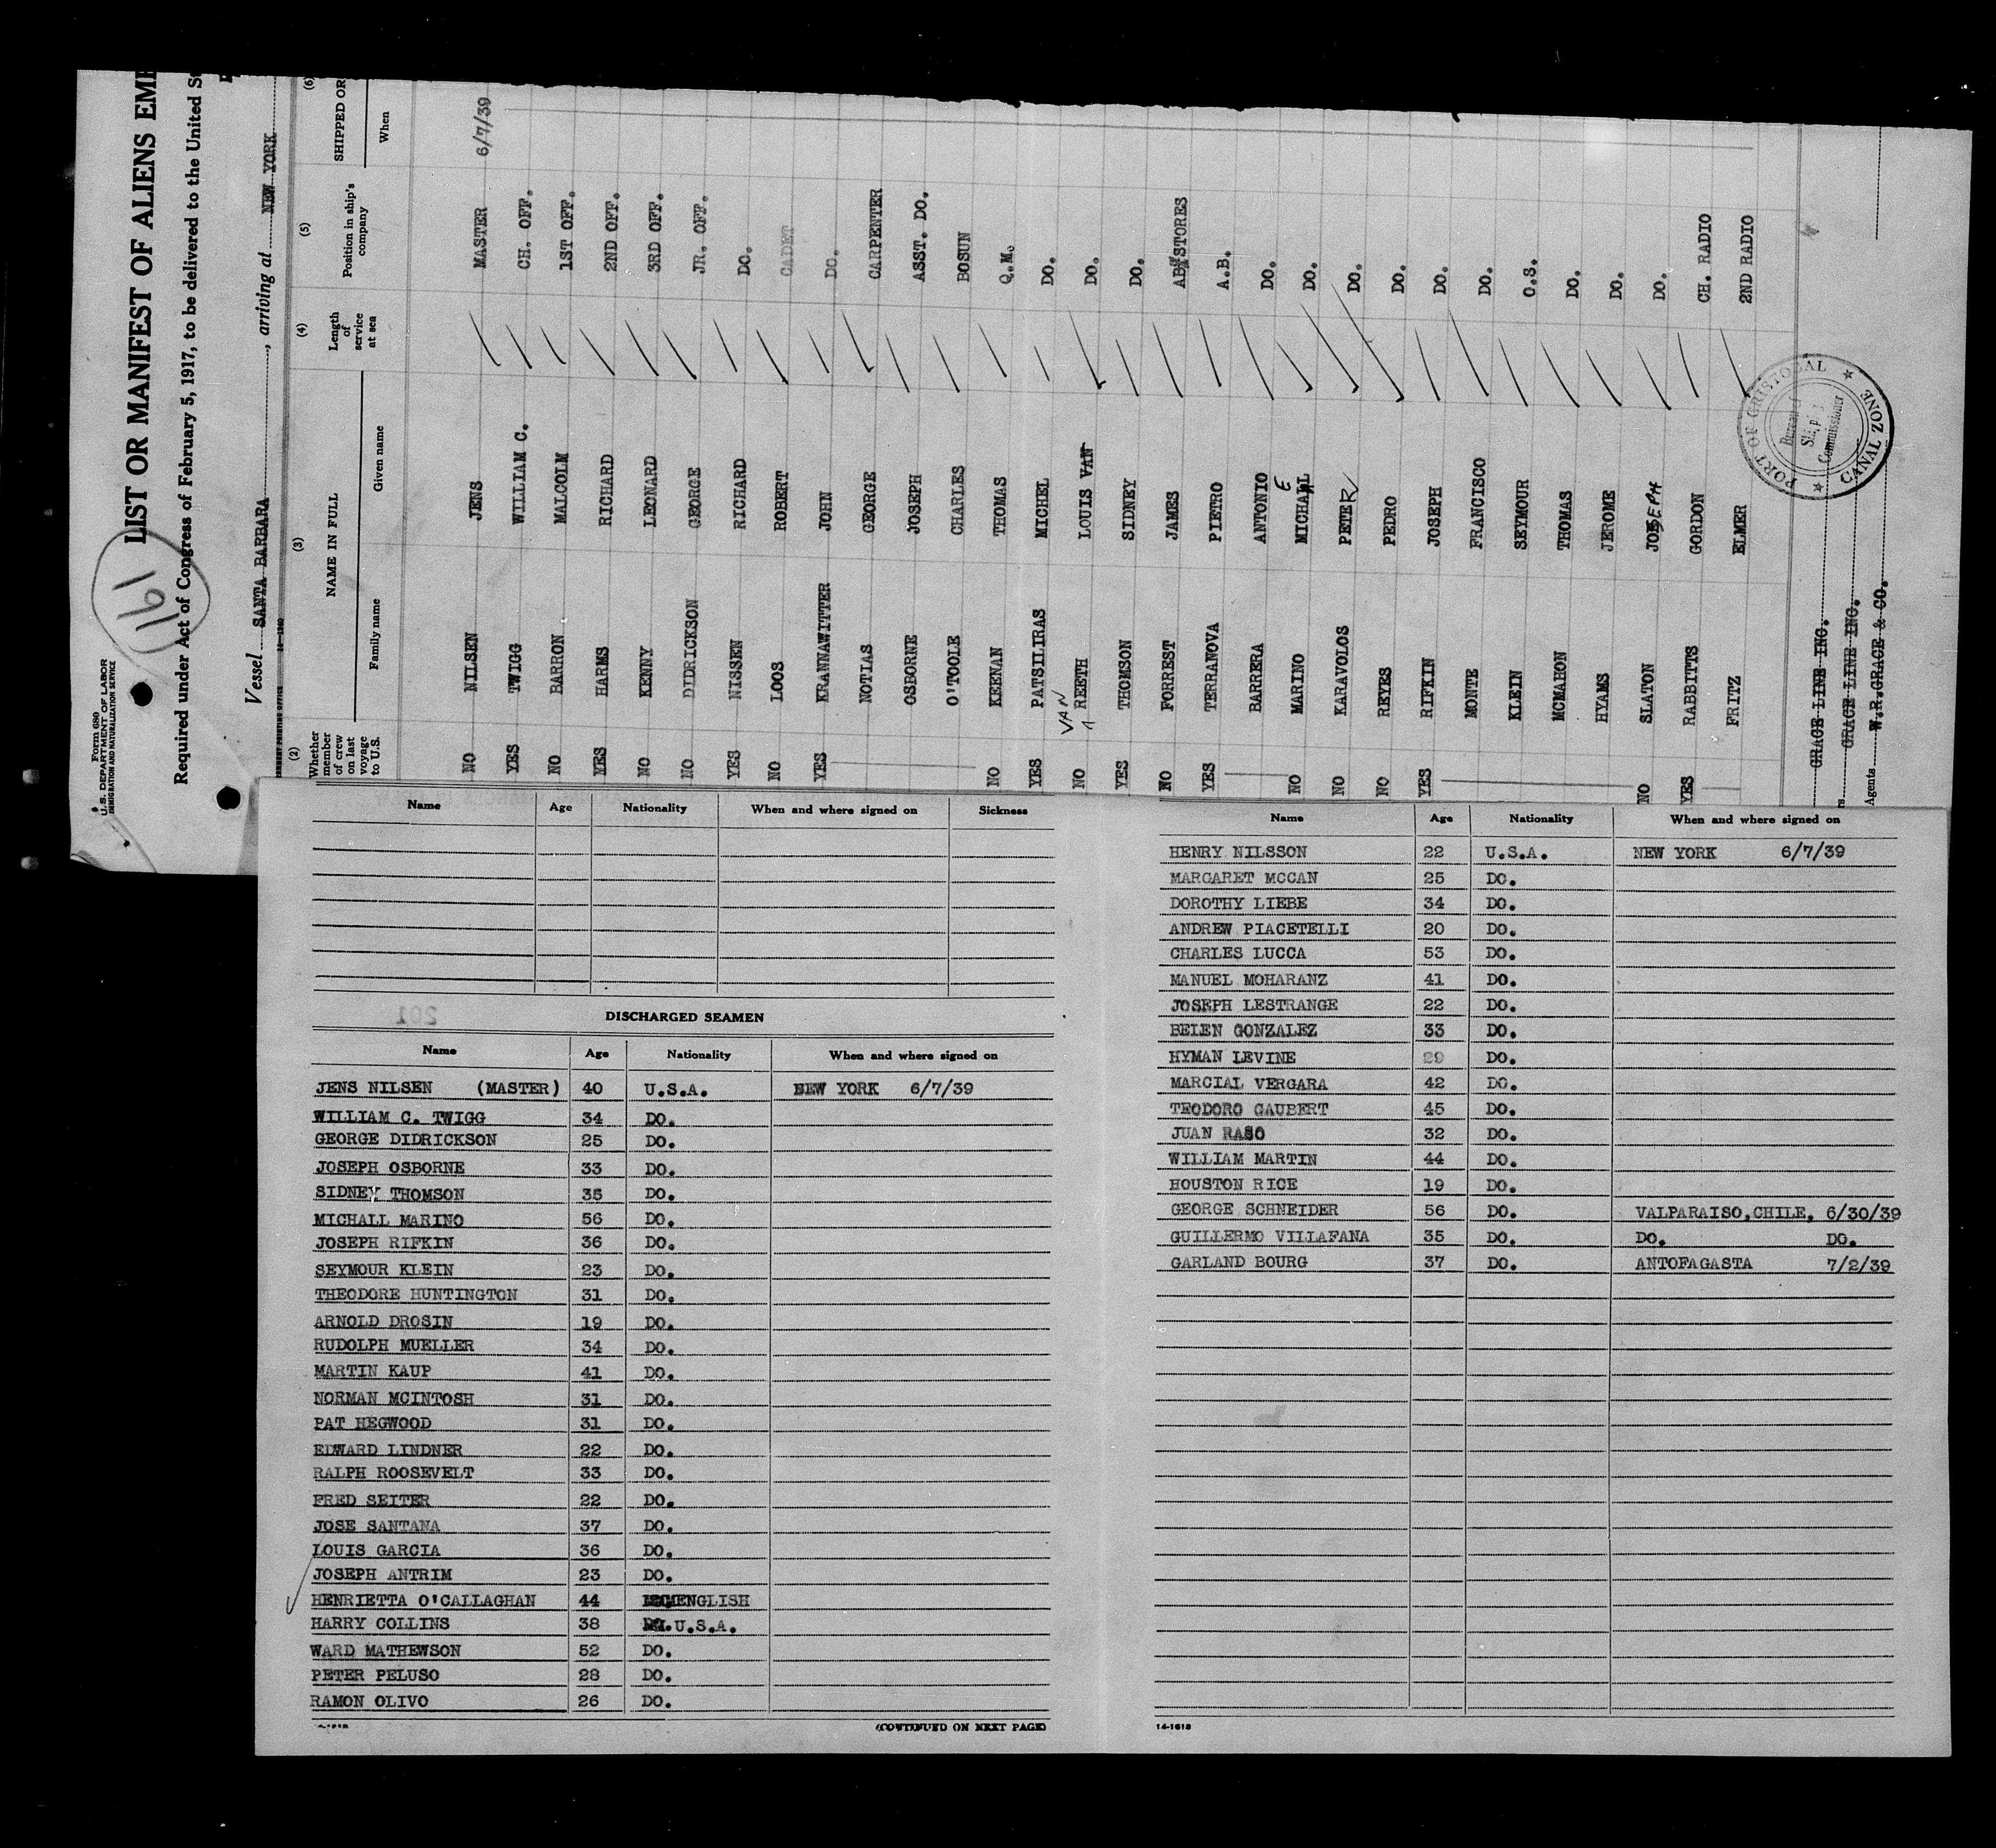 Form 680
U.S. DEPARTMENT OF LABOR
IMMIGRATION AND NATURALIZATION SERVICE
161
LIST OR MANIFEST OF ALIENS EM
Required under Act of Congress of February 5, 1917, to be delivered to the United
Vessel SANTA BARBARA, arriving at NEW YORK
(2) (3) (4) (5) (6)
Whether member of crew on last voyage to U.S. NAME IN FULL Family name Given name Length of service at sea Position in ship's company SHIPPED OR When
NO NILSEN JENS MASTER 6/7/39
YES TWIGG WILLIAM C. CH. OFF.
NO BARRON MALCOLM 1ST OFF.
YES HARMS RICHARD 2ND OFF.
NO KENNY LEONARD 3RD OFF.
NO DIDRICKSON GEORGE JR. OFF.
YES NISSEN RICHARD DO.
NO LOOS ROBERT CADET
YES KRANNAWITTER JOHN DO.
NOTIAS GEORGE CARPENTER
OSBORNE JOSEPH ASST. DO.
O'TOOLE CHARLES BOSUN
NO KEENAN THOMAS Q.M.
YES PATSILIRAS MICHEL DO.
NO VAN REETH LOUIS VAN DO.
YES THOMSON SIDNEY DO.
NO FORREST JAMES AB STORES
YES TERRANOVA PIETRO A.B.
BARRERA ANTONIO DO.
NO MARINO MICHAEL DO.
NO KARAVOLOS PETER DO.
NO REYES PEDRO DO.
YES RIFKIN JOSEPH DO.
MONTE FRANCISCO DO.
KLEIN SEYMOUR O.S.
MCMAHON THOMAS DO.
HYAMS JEROME DO.
NO SLATON JOSEPH DO.
YES RABBITTS GORDON CH. RADIO
FRITZ ELMER 2ND RADIO
GRACE LINE INC.
GRACE LINE INC.
Agents W.R.GRACE & CO.
PORT OF CRISTOBAL
CANAL ZONE
Bureau of
Commissioner
Name Age Nationality When and where signed on Sickness
201
DISCHARGED SEAMEN
Name Age Nationality When and where signed on
JENS NILSEN (MASTER) 40 U.S.A. NEW YORK 6/7/39
WILLIAM C. TWIGG 34 DO.
GEORGE DIDRICKSON 25 DO.
JOSEPH OSBORNE 33 DO.
SIDNEY THOMSON 35 DO.
MICHALL MARINO 56 DO.
JOSEPH RIFKIN 36 DO.
SEYMOUR KLEIN 23 DO.
THEODORE HUNTINGTON 31 DO.
ARNOLD DROSIN 19 DO.
RUDOLPH MUELLER 34 DO.
MARTIN KAUP 41 DO.
NORMAN MCINTOSH 31 DO.
PAT HEGWOOD 31 DO.
EDWARD LINDNER 22 DO.
RALPH ROOSEVELT 33 DO.
FRED SEITER 22 DO.
JOSE SANTANA 37 DO.
LOUIS GARCIA 36 DO.
JOSEPH ANTRIM 23 DO.
HENRIETTA O'CALLAGHAN 44 ENGLISH
HARRY COLLINS 38 U.S.A.
WARD MATHEWSON 52 DO.
PETER PELUSO 28 DO.
RAMON OLIVO 26 DO.
(CONTINUED ON NEXT PAGE)
Name Age Nationality When and where signed on
HENRY NILSSON 22 U.S.A. NEW YORK 6/7/39
MARGARET MCCAN 25 DO.
DOROTHY LIEBE 34 DO.
ANDREW PIACETELLI 20 DO.
CHARLES LUCCA 53 DO.
MANUEL MOHARANZ 41 DO.
JOSEPH LESTRANGE 22 DO.
BELEN GONZALEZ 33 DO.
HYMAN LEVINE 29 DO.
MARCIAL VERGARA 42 DO.
TEODORO GAUBERT 45 DO.
JUAN RASO 32 DO.
WILLIAM MARTIN 44 DO.
HOUSTON RICE 19 DO.
GEORGE SCHNEIDER 56 DO. VALPARAISO,CHILE, 6/30/39
GUILLERMO VILLAFANA 35 DO. DO. DO.
GARLAND BOURG 37 DO. ANTOFAGASTA 7/2/39
14-1613